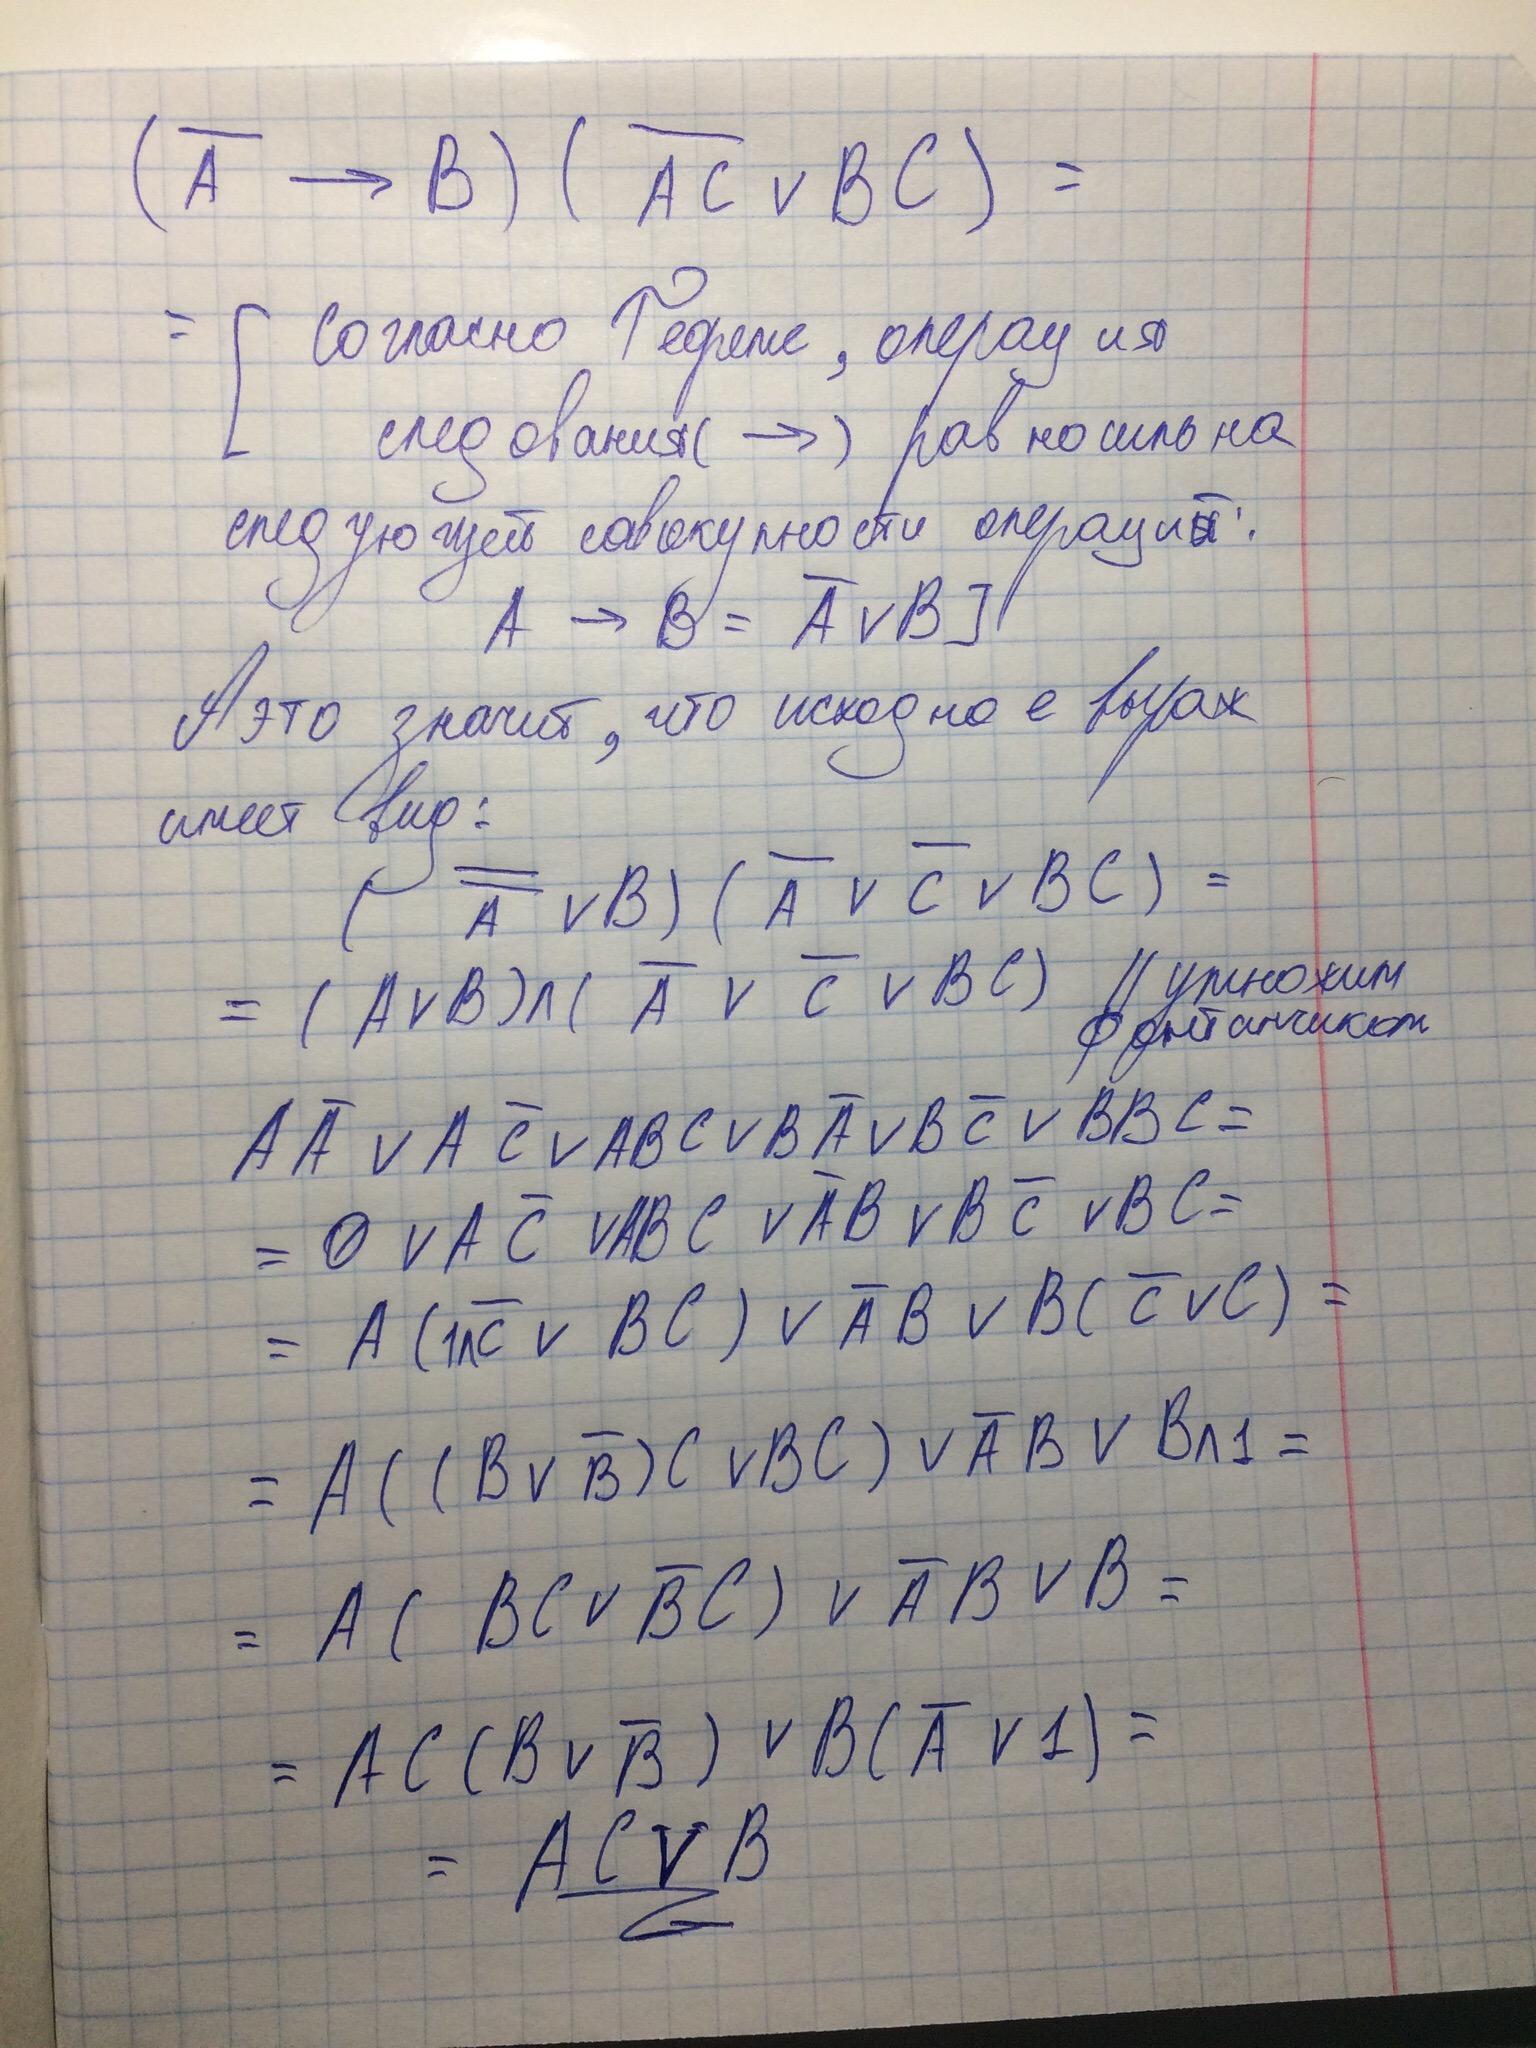 (A̅ → B) (A̅C̅ ∨ BC) =
= [ Согласно Теореме, операция
следования (→) равносильна
следующей совокупности операций:
A → B = A̅ ∨ B ]
А это значит, что исходное выраж
имеет вид:
(A̿ ∨ B) (A̅ ∨ C̅ ∨ BC) =
= (A ∨ B) ∧ ( A̅ ∨ C̅ ∨ BC) // умножим
фонтанчиком
AA̅ ∨ AC̅ ∨ ABC ∨ BA̅ ∨ BC̅ ∨ BBC =
= 0 ∨ AC̅ ∨ ABC ∨ A̅B ∨ BC̅ ∨ BC =
= A (1∧C̅ ∨ BC) ∨ A̅B ∨ B (C̅ ∨ C) =
= A ((B ∨ B̅)C ∨ BC) ∨ A̅B ∨ B∧1 =
= A ( BC ∨ B̅C) ∨ A̅B ∨ B =
= AC (B ∨ B̅) ∨ B (A̅ ∨ 1) =
= AC ∨ B